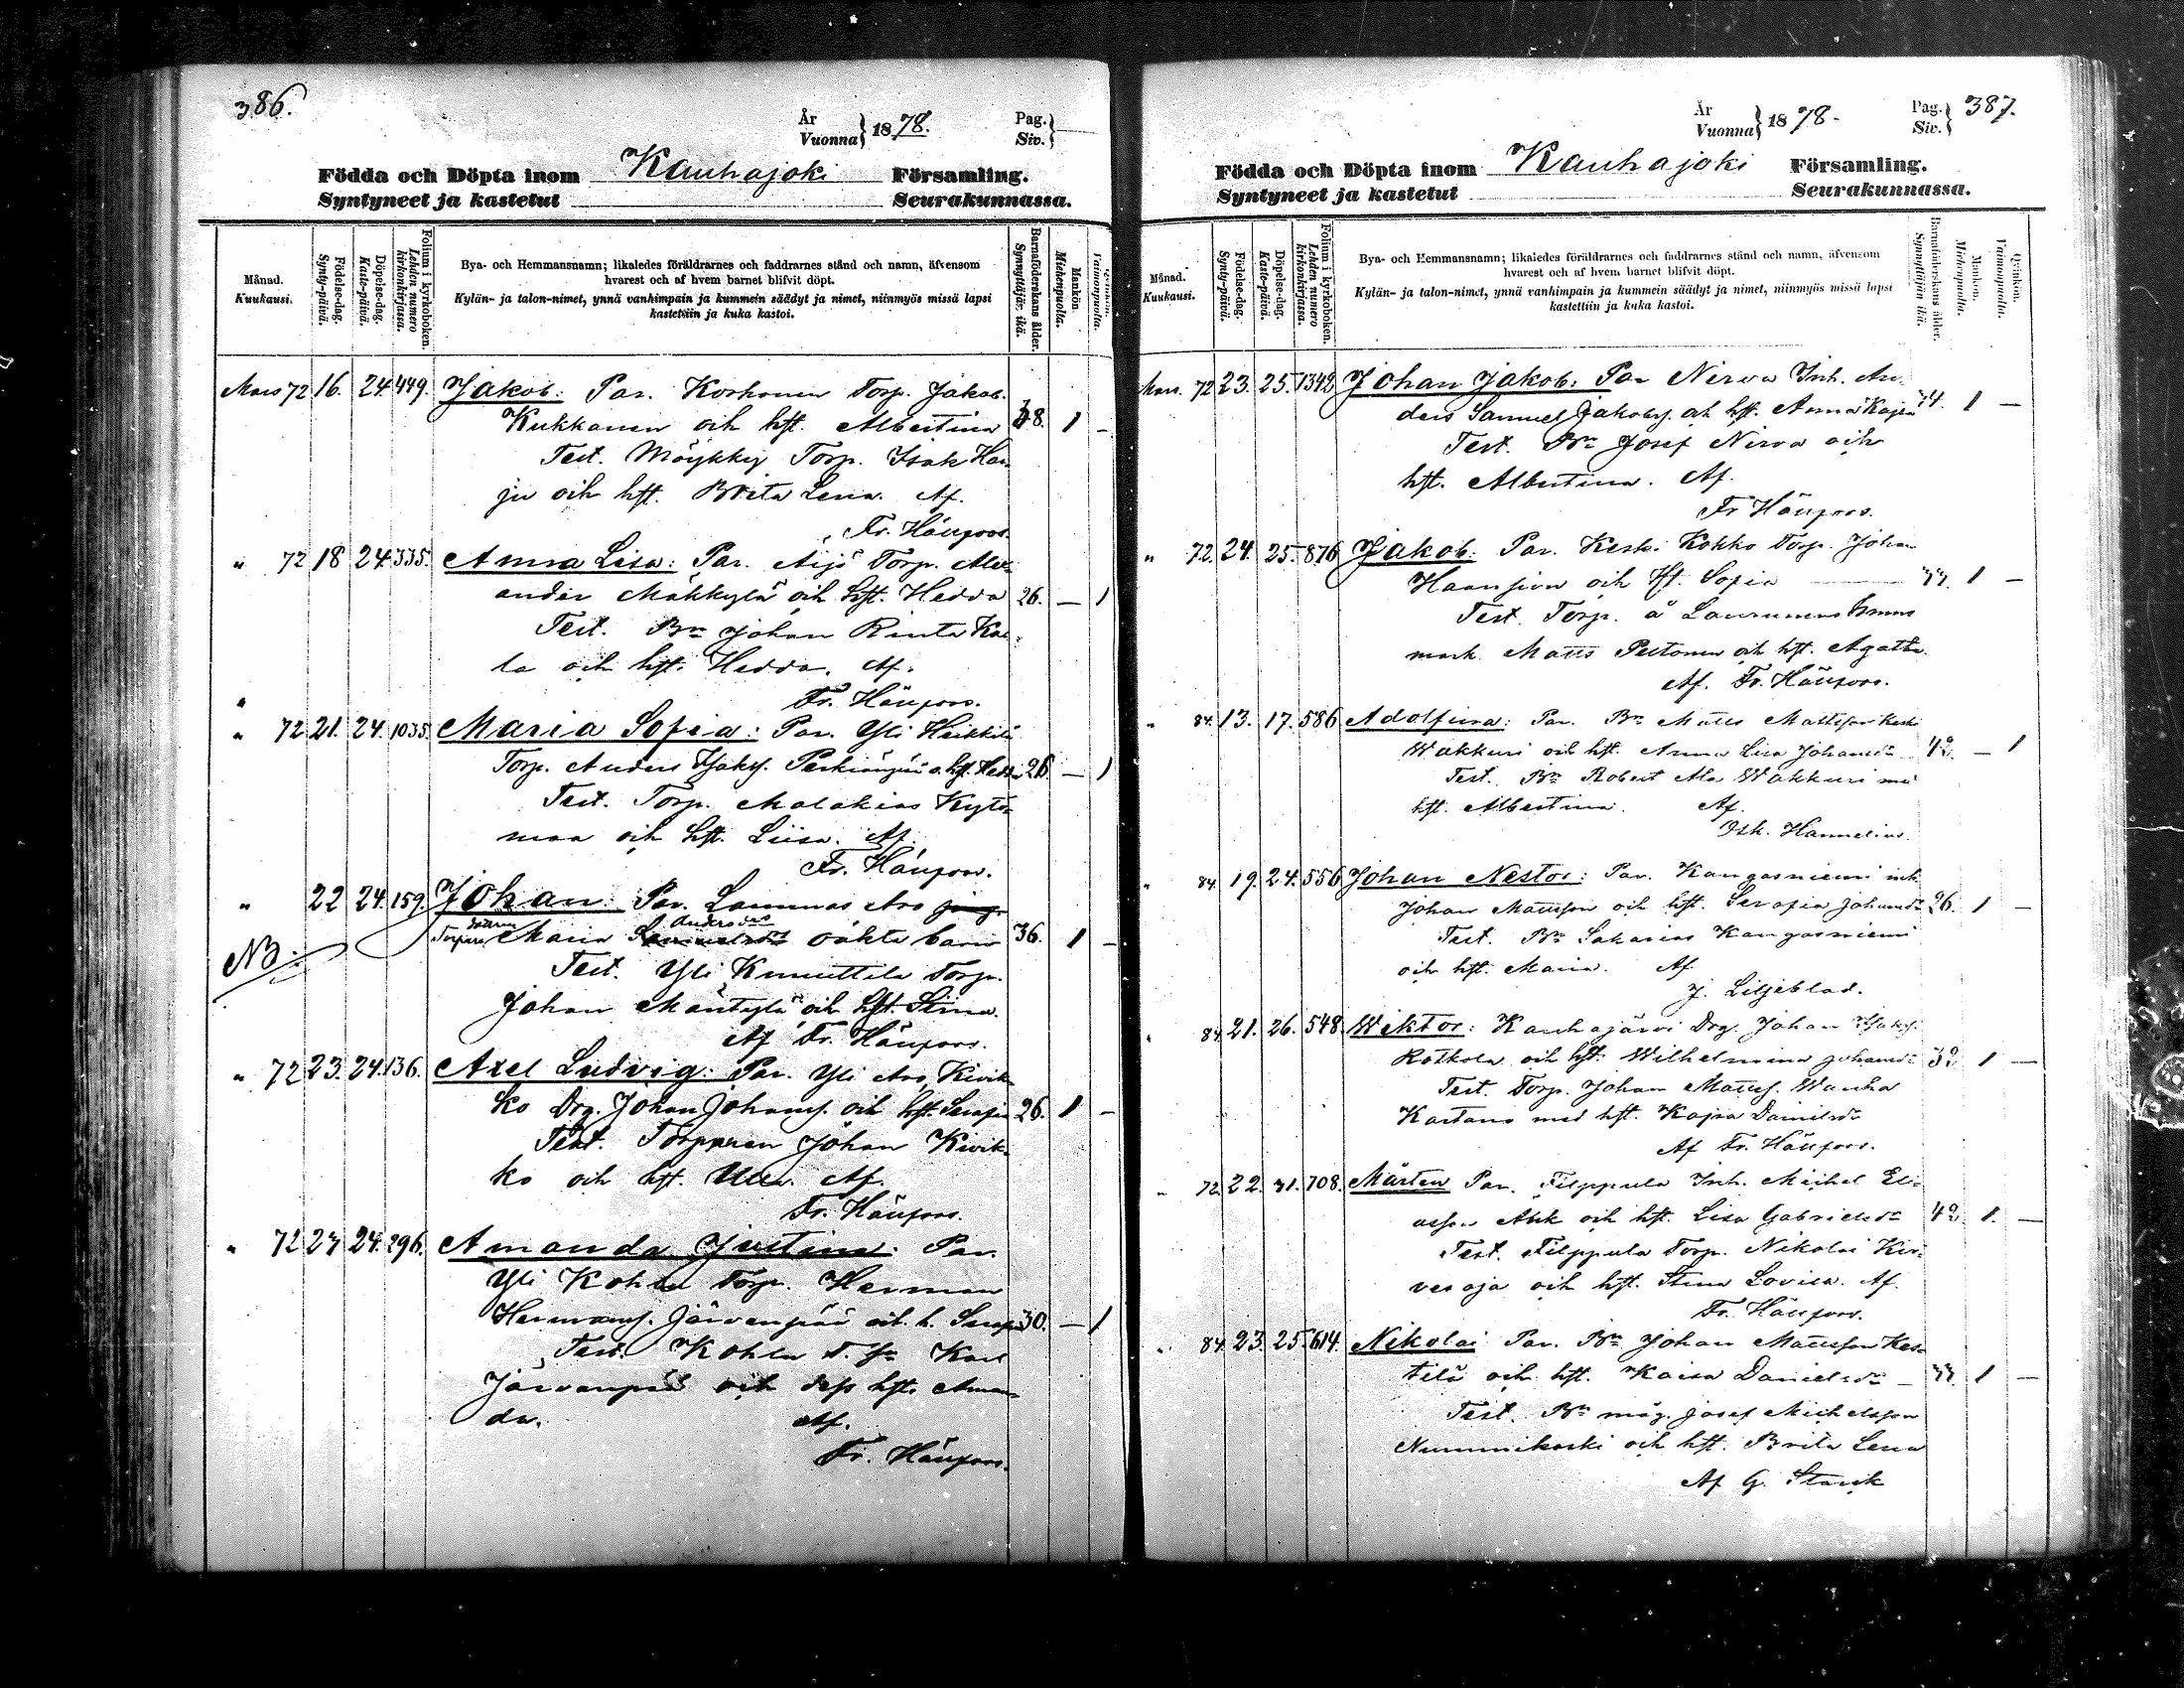 386.
År
Vuonna} 1878.
Pag.
Siv.}
Födda och Döpta inom Kauhajoki Församling.
Syntyneet ja kastetut Seurakunnassa.
Månad.
Kuukausi.
Födelse-dag.
Synty-päivä.
Döpelse-dag.
Kaste-päivä.
Folium i kyrkoboken.
Lehden numero kirkonkirjassa.
Bya- och Hemmansnamn; likaledes föräldrarnes och faddrarnes stånd och namn, äfvensom
hvarest och af hvem barnet blifvit döpt.
Kylän- ja talon-nimet, ynnä vanhimpain ja kummein säädyt ja nimet, niinmyös missä lapsi
kastettiin ja kuka kastoi.
Barnaföderskans ålder.
Synnyttäjän ikä.
Mankön.
Miehenpuolta.
Qvinkön.
Vaimonpuolta.
Mars 72 16. 24. 449. Jakob: Par. Korhonen Torp. Jakob.
Kukkanen och hst. Albertina 38. 1 –
Test. Möykky Torp. Isak Har
ju och hst. Brita Lena. Af.
Fr. Häufoos.
" 72 18 24. 335. Anna Lisa: Par. Äijö Torp. Alex
ander Mäkkylä och hst. Hedda 26. – 1
Test. Bn Johan Rinta Kau
la och hst. Hedda. Af.
Fr. Häufoos.
" 72 21. 24. 1035. Maria Sofia: Par. Yli Heikkilä
Torp. Anders Isaks. o. hst. Hedda 26 – 1
Test. Torp. Malakias Kytö
maa och hst. Liisa. Af.
Fr. Häufoos.
" 22 24. 159. Johan: Par. Lammas Aro
Maria Andersdr oäkta barn 36. 1 –
NB.
Test. Yli Knuuttila Torp.
Johan Mäntylä och hst. Stina.
Af Fr. Häufoos.
" 72 23. 24. 136. Axel Ludvig: Par. Yli Aro, Kivik
ko Drg. Johan Johans. och hst. Serafia 26. 1 –
Test. Torpparen Johan Kivik
ko och hst. Ulla. Af.
Fr. Häufoos.
" 72 23 24. 296. Amanda Justina: Par.
Yli Kohla Torp. Herman
Hermans. Järvenpää och h. Seraf. 30. – 1
Test. Kohla T. Karl
Järvenpää och dess hst. Aman
da. Af.
Fr. Häufoos.
År
Vuonna} 1878.
Pag.
Siv.} 387.
Födda och Döpta inom Kauhajoki Församling.
Syntyneet ja kastetut Seurakunnassa.
Månad.
Kuukausi.
Födelse-dag.
Synty-päivä.
Döpelse-dag.
Kaste-päivä.
Folium i kyrkoboken.
Lehden numero kirkonkirjassa.
Bya- och Hemmansnamn; likaledes föräldrarnes och faddrarnes stånd och namn, äfvensom
hvarest och af hvem barnet blifvit döpt.
Kylän- ja talon-nimet, ynnä vanhimpain ja kummein säädyt ja nimet, niinmyös missä lapsi
kastettiin ja kuka kastoi.
Barnaföderskans ålder.
Synnyttäjän ikä.
Mankön.
Miehenpuolta.
Qvinkön.
Vaimonpuolta.
Mars. 72 23. 25. 1342 Johan Jakob: Par Nirva Inh. An
ders Samuel Jakobs. och hst. Anna Kajsa 1 –
Test. Bn Josef Nirva och
hst. Albertina. Af.
Fr Häufoos.
" 72. 24. 25. 876 Jakob: Par. Keski Kokko Torp. Johan
och hst. Sofia 33. 1 –
Test. Torp. å
mark Matts Peltonen och hst. Agatha.
Af. Fr. Häufoos.
" 84. 13. 17. 586 Adolfina: Par. Bn Matts Mattsson Keski
Wakkuri och hst. Anna Lisa Johansdr 42. – 1
Test. Bn Robert Ala Wakkuri med
hst. Albertina. Af.
Osk. Hannelius.
" 84. 19. 24. 556 Johan Nestor: Par. Kangasniemi inh.
Johan Mattsson och hst. Serafia Johansdr 26. 1 –
Test. Bn Sakarias Kangasniemi
och hst. Maria. Af
J. Liljeblad.
" 84 21. 26. 548. Wiktor: Kauhajärvi Drg. Johan Isaks.
Kotkola och hst. Wilhelmina Johansdr 32. 1 –
Test. Torp. Johan Matts. Wanha
Kartano med hst. Kajsa Danielsdr
Af Fr. Häufoos.
" 72. 22. 31. 708. Mårten Par. Filppula Inh. Michel Eli
asson och hst. Lisa Gabrielsdr 42. 1. –
Test. Filppula Torp. Nikolai Kir
vesoja och hst. Stina Lovisa. Af.
Fr. Häufoos.
" 84. 23. 25. 614. Nikolai Par. Bn Johan Mattsson Kes
tilä och hst. Kaisa Danielsdr – 33. 1 –
Test. Bn måg. Josef Michelsson
Nummikoski och hst. Brita Lena
Af G. Starck